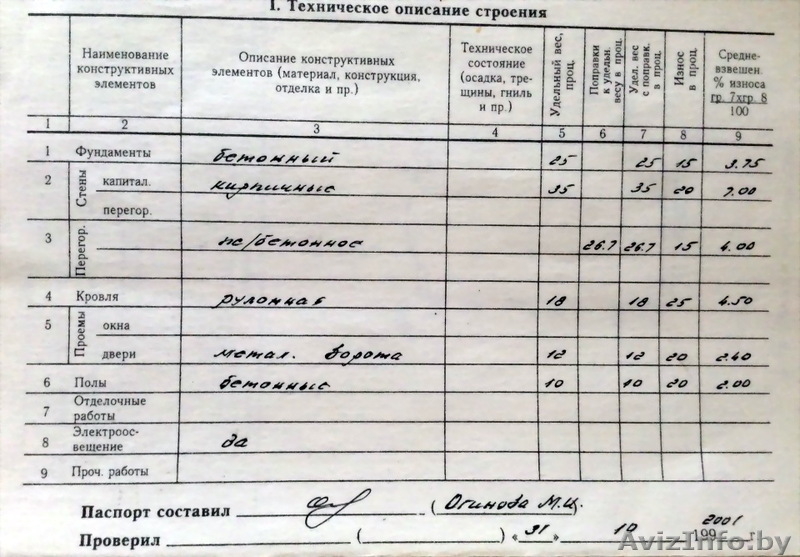 I. Техническое описание строения
Наименование конструктивных элементов | Описание конструктивных элементов (материал, конструкция, отделка и пр.) | Техническое состояние (осадка, трещины, гниль и пр.) | Удельный вес, проц. | Поправки к удельн. весу в проц. | Удел. вес с поправк. в проц. | Износ в проц. | Средневзвешен % износа гр. 7хгр. 8 100
1 2 3 4 5 6 7 8 9
1 Фундаменты бетонный 25 25 15 3.75
2 Стены капитал. кирпичные 35 35 20 7.00
перегор.
3 Перегор. ж/бетонное 26.7 26.7 15 4.00
4 Кровля рулонная 18 18 25 4.50
5 Проемы окна
двери метал. ворота 12 12 20 2.40
6 Полы бетонные 10 10 20 2.00
7 Отделочные работы
8 Электроосвещение да
9 Проч. работы
Паспорт составил ( Огинова М.Ц.
Проверил ( ) «31 10 199 2001 г.
AvizInfo.by